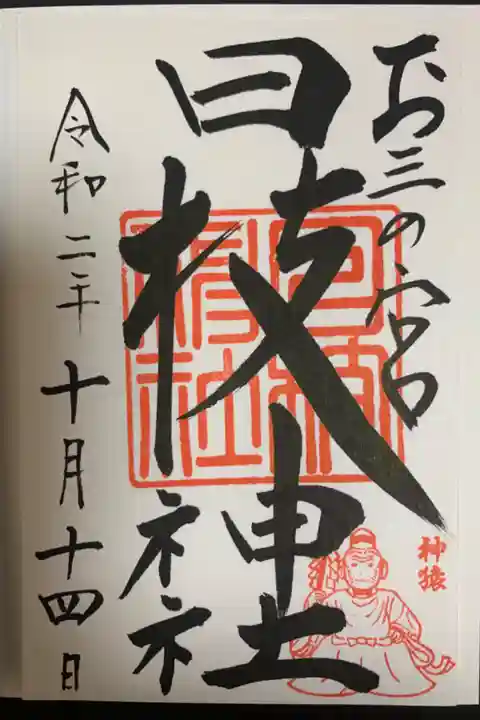 お三の宮
日枝神社
令和二年十月十四日
日枝神社
神猿